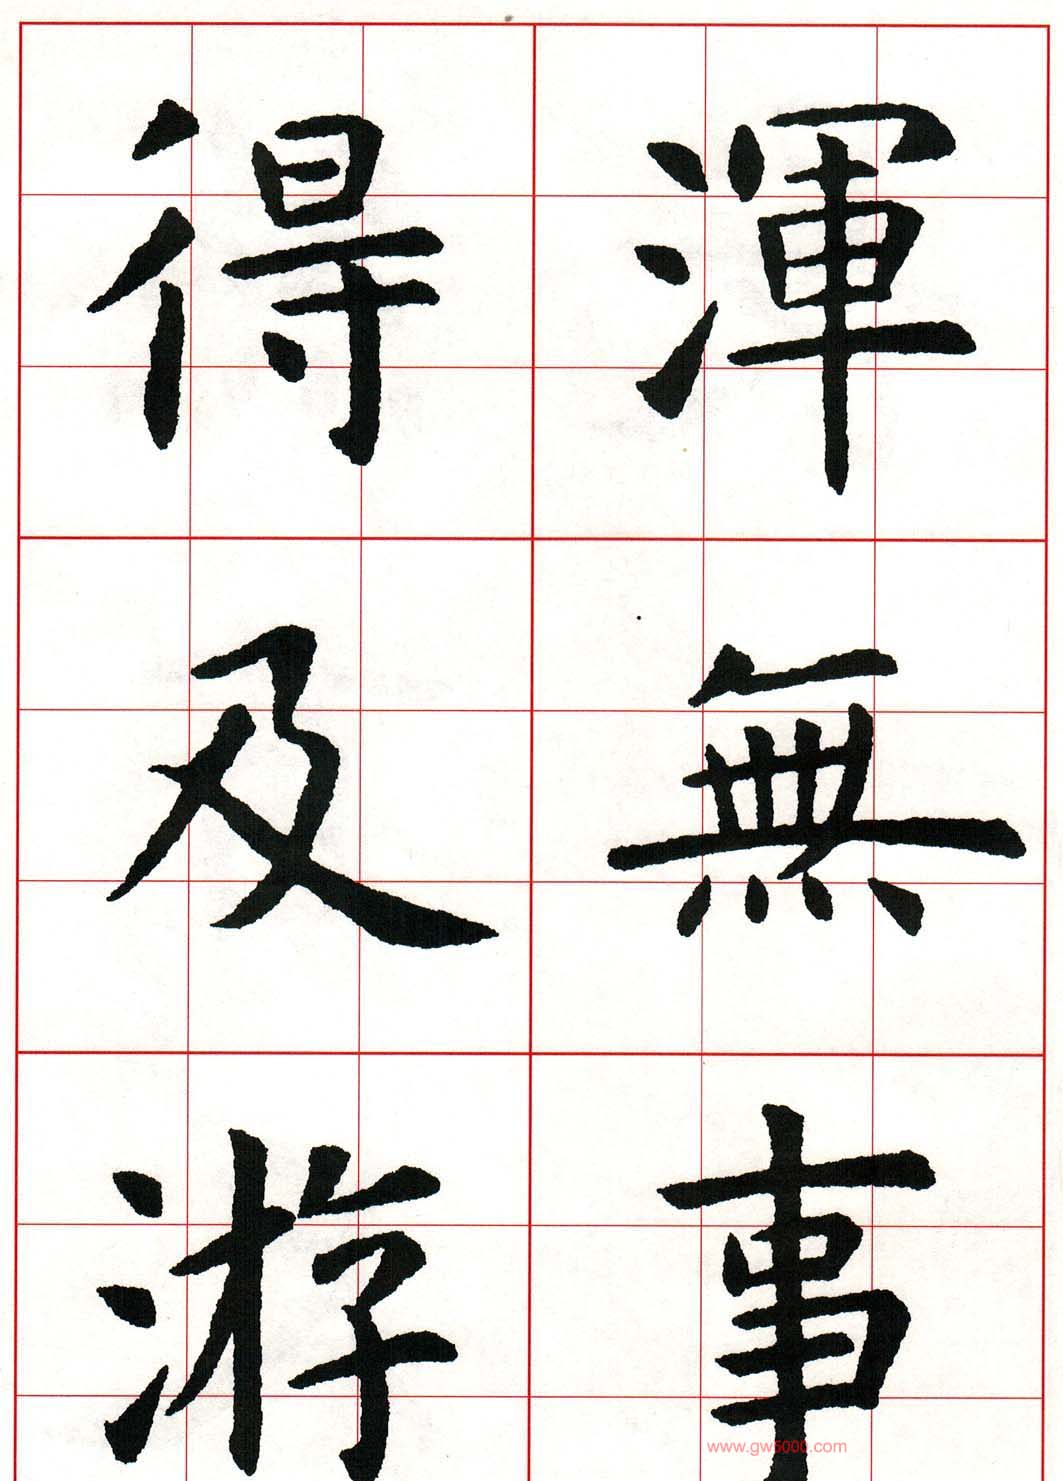 渾無事
得及游
www.gw5000.com